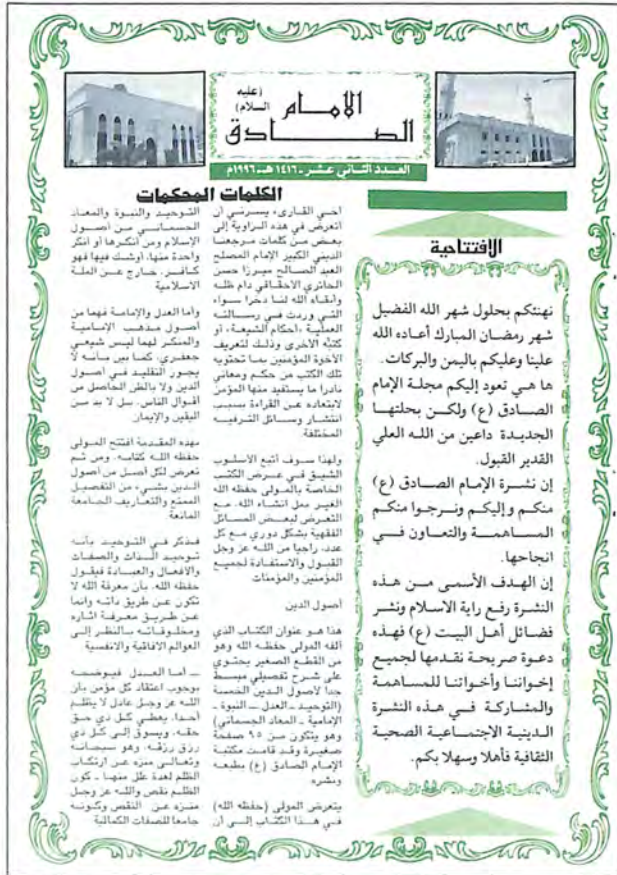 الامام
الصادق
(عليه
السلام)
العدد الثاني عشر - ١٤١٦ هـ - ١٩٩٦م
الافتتاحية
نهنئكم بحلول شهر الله الفضيل
شهر رمضان المبارك أعاده الله
علينا وعليكم باليمن والبركات.
ها هي تعود إليكم مجلة الإمام
الصادق (ع) ولكن بحلتها
الجديدة داعين من الله العلي
القدير القبول.
إن نشرة الإمام الصادق (ع)
منكم وإليكم ونرجوا منكم
المساهمة والتعاون في
انجاحها.
إن الهدف الأسمى من هذه
النشرة رفع راية الاسلام ونشر
فضائل أهل البيت (ع) فهذه
دعوة صريحة نقدمها لجميع
إخواننا وأخواتنا للمساهمة
والمشاركة في هذه النشرة
الدينية الاجتماعية الصحية
الثقافية فأهلا وسهلا بكم.
الكلمات المحكمات
اخي القارىء يسرني ان
أتعرض في هذه الزاوية إلى
بعض من كلمات مرجعنا
الديني الكبير الإمام المصلح
العبد الصالح ميرزا حسن
الحائري الاحقاقي دام ظله
وأبقاه الله لنا ذخرا سواء
التي وردت في رسالته
العملية «أحكام الشيعة» أو
كتبه الأخرى وذلك لتعريف
الأخوة المؤمنين بما تحتويه
تلك الكتب من حكم ومعاني
نادرا ما يستفيد منها المؤمن
لابتعاده عن القراءة بسبب
انتشار وسائل الترفيه
المختلفة.
ولهذا سوف أتبع الاسلوب
الشيق في عرض الكتب
الخاصة بالمولى حفظه الله
الغير ممل انشاء الله، مع
التعرض لبعض المسائل
الفقهية بشكل دوري مع كل
عدد، راجيا من الله عز وجل
القبول والاستفادة لجميع
المؤمنين والمؤمنات
أصول الدين
هذا هو عنوان الكتاب الذي
ألفه المولى حفظه الله وهو
من القطع الصغير يحتوي
على شرح تفصيلي مبسط
جدا لأصول الدين الخمسة
(التوحيد - العدل - النبوة -
الإمامية - المعاد الجسماني)
وهو يتكون من ٩٥ صفحة
صغيرة وقد قامت مكتبة
الإمام الصادق (ع) بطبعه
ونشره.
يتعرض المولى (حفظه الله)
في هذا الكتاب إلى أن
التوحيد والنبوة والمعاد
الجسماني من أصول
الإسلام ومن أنكرها أو أنكر
واحدة منها، أوشك فيها فهو
كافر، خارج عن الملة
الاسلامية
وأما العدل والإمامة فهما من
أصول مذهب الإمامية
والمنكر لهما ليس شيعي
جعفري، كما بين مأنه لا
يجوز التقليد في أصول
الدين ولا بالظن الحاصل من
أقوال الناس، بل لا بد من
اليقين والإيمان.
بهذه المقدمة افتتح المولى
حفظه الله كتابه، ومن ثم
تعرض لكل أصل من أصول
الدين بشيء من التفصيل
الممتع والتعاريف الجامعة
المانعة
فذكر في التوحيد بأنه
توحيد الذات والصفات
والأفعال والعبادة فيقول
حفظه الله، بأن معرفة الله لا
تكون عن طريق ذاته وانما
عن طريق معرفة اثاره
ومخلوقاته بالنظر إلى
العوالم الافاقية والانفسية
ـ أما العدل فيوضحه
بوجوب اعتقاد كل مؤمن بأن
الله عز وجل عادل لا يظلم
أحدا، يعطي كل ذي حق
حقه، ويسوق إلى كل ذي
رزق رزقه، وهو سبحانه
وتعالى منزه عن ارتكاب
الظلم لعدة علل منها ـ كون
الظلم نقص والله عز وجل
منزه عن النقص وكونه
جامعا للصفات الكمالية